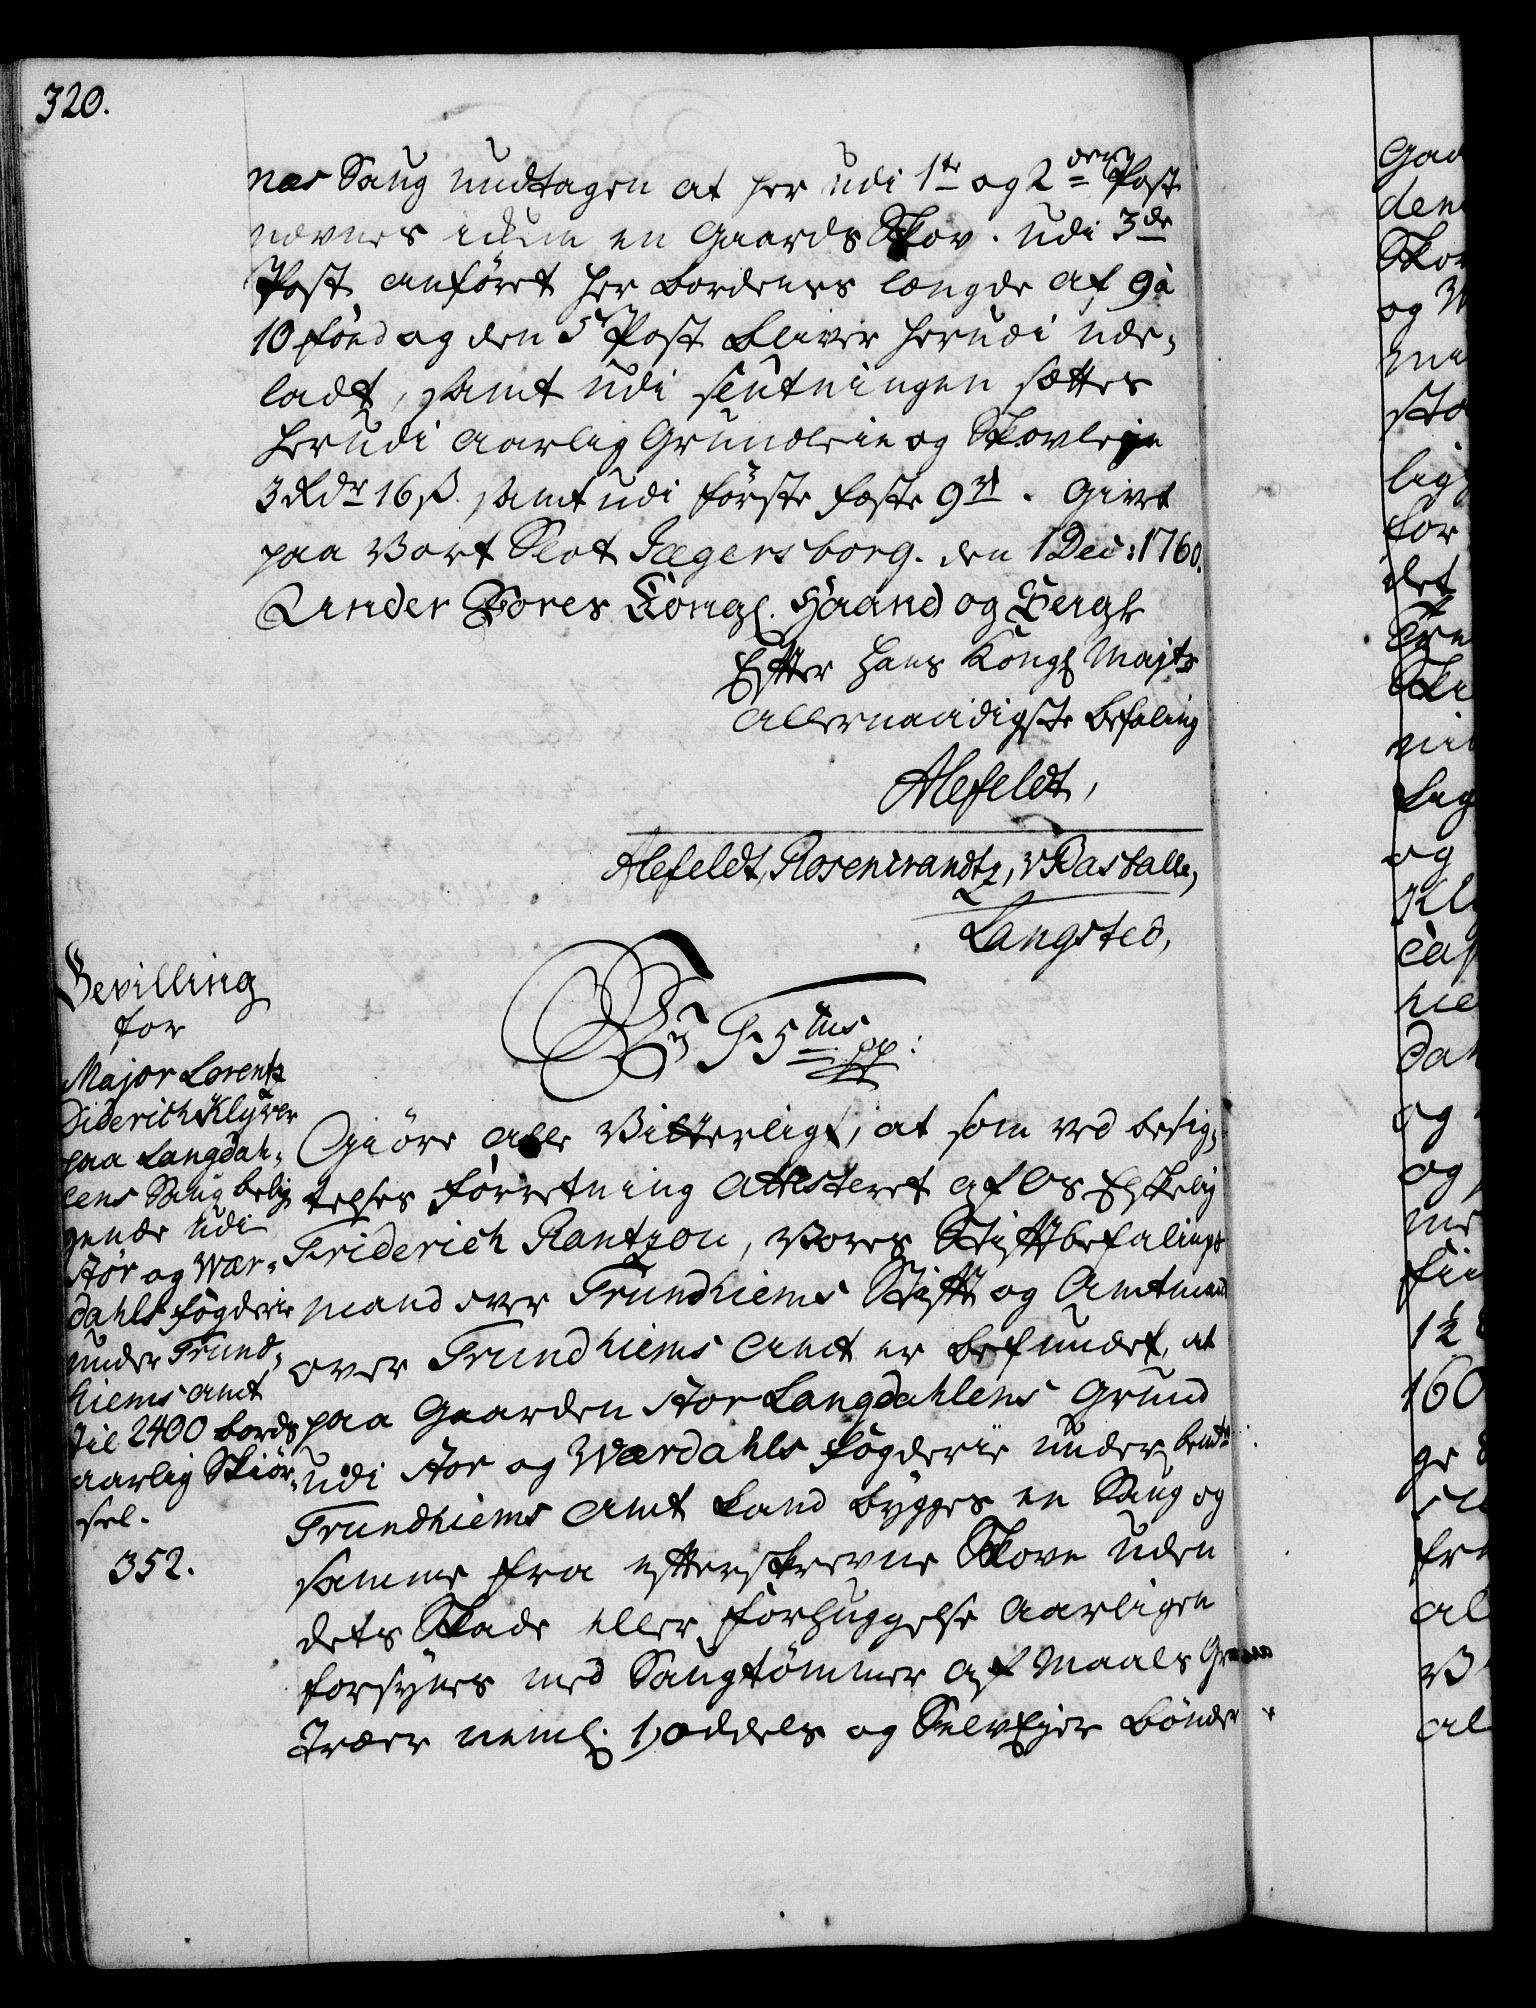 320.
nas Saug undtagen at her udi 1te og 2den Post
nævnes ickun en Gaards Skov. udi 3de
Post anföret her Bordenes længde af 9 à
10 foed og den 5 Post bliver herudi ude-
ladt, samt udi slutningen sættes
herudi aarlig Grundleie og Skovleje
3 Rdr 16 s. samt udi förste fæste 9 rd. Givet
paa Vort Slot Jægersborg. den 1 Dec: 1760.
Under Vores Kongl. Haand og Zeigl
Efter Hans Kongl Majts
allernaadigste Befaling
Alefeldt,
Alefeldt, Rosencrandtz, v Raskalle,
Langsted,
Bevilling
for
Major Lorentz
Diderich Klÿver
paa Langdah-
lens Saug belig-
gende udi
Stör og Wær-
dahls fögderie
under Trund-
hiems amt
til 2400 bords
aarlig Skiör-
sel.
352.
Vj F 5tus pp:
Giöre Alle Vitterligt, at som ved besig-
telses Forretning attesteret af Os Elskelig
Friderich Rantzou, Vores Stiftbefalings
mand over Trundhiems Stift og Amtmand
over Trundhiems Amt er befundet, at
paa Gaarden Stor Langdahlens Grund
udi Stör og Wærdahls fögderie under bemte
Trundhiems Amt kand bygges en Saug og
samme fra efterskrevne Skove uden
dets Skade eller forhuggelse Aarligen
forsÿnes med Saugtömmer af Maals Gran
Træer neml. 1, oddels og SelvEjer Bönder